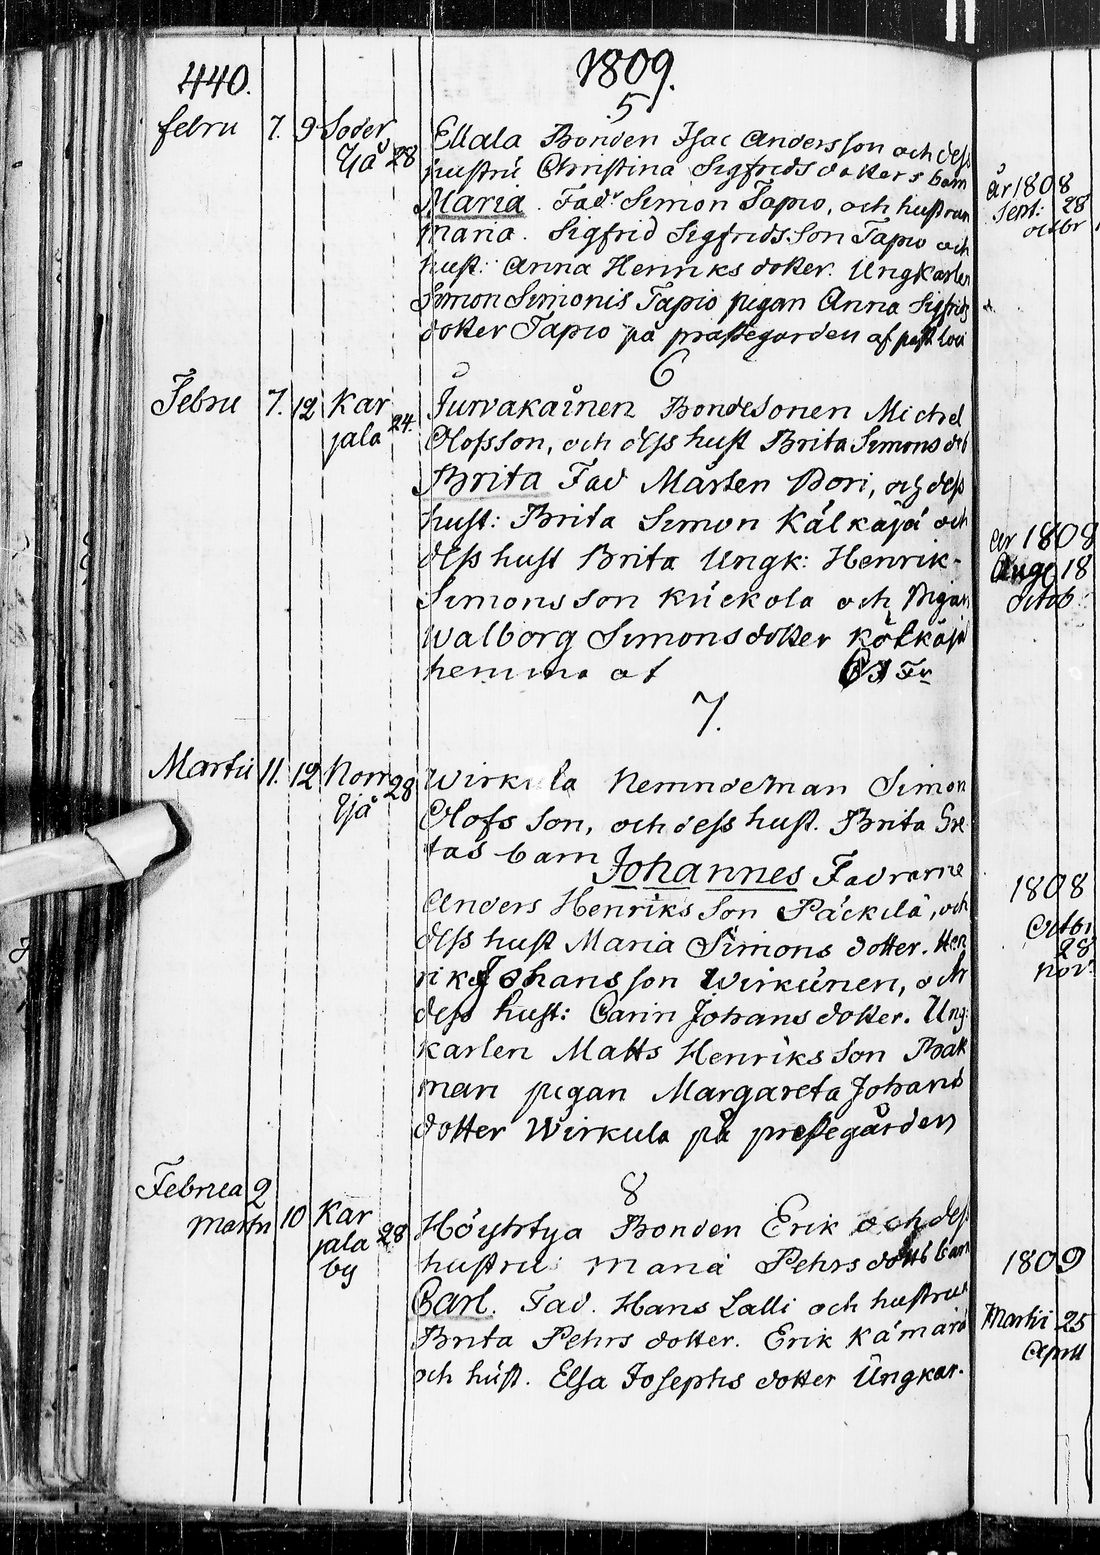 440.
1809.
5
febru 7. 9 Soder Ellala Bonden Isac Andersson och dess
Yjå 28 hustru Christina Sigfrids dotters barn
Maria. Fadr Simon Tapio, och hustrun
maria. Sigfrid Sigfrids Son Tapio och
hust: Anna Henriks dotter. Ungkarlen
Simon Simonis Tapio pigan Anna Sigfrids
dotter Tapio på prästegården af past
6
Febru 7. 12 Kar Jurvakainen Bondesonen Michel
jala 24. Olofsson, och dess hust Brita Simons dot
Brita Fad Mårten Pori, och dess
hust: Brita Simon Kälkäjä och
dess hust Brita Ungk: Henrik
Simons son Kückola och Pigan
Walborg Simonsdotter Kölkäjä
hemma af
7.
Martii 11. 12 Norr Wirkula Nemndeman Simon
Yjå 28 Olofs Son, och dess hust. Brita Gre
tas barn Johannes Fadrarne
Anders Henriks Son Päckilä, och
dess hust Maria Simons dotter. Hen
riks Johansson Wirkünen, och
dess hust: Carin Johans dotter. Ung:
karlen Matts Henriks Son Bak
man pigan Margareta Johans
dotter Wirkula på prestegården
8
Februa 2
Martii 10 Kar Höyhtya Bonden Erik och dess
jala 28 hustru maria Pehrs dotts barn
by Carl. Fad. Hans Lalli och hustrun
Brita Pehrs dotter. Erik Kämärä
och hust. Elsa Josephs dotter Ungkar-
år 1808
Sept: 28
octbr
år 1808
Aug 18
Octob:
1808
Octbr
28
nov:
1809
Martii 25
April